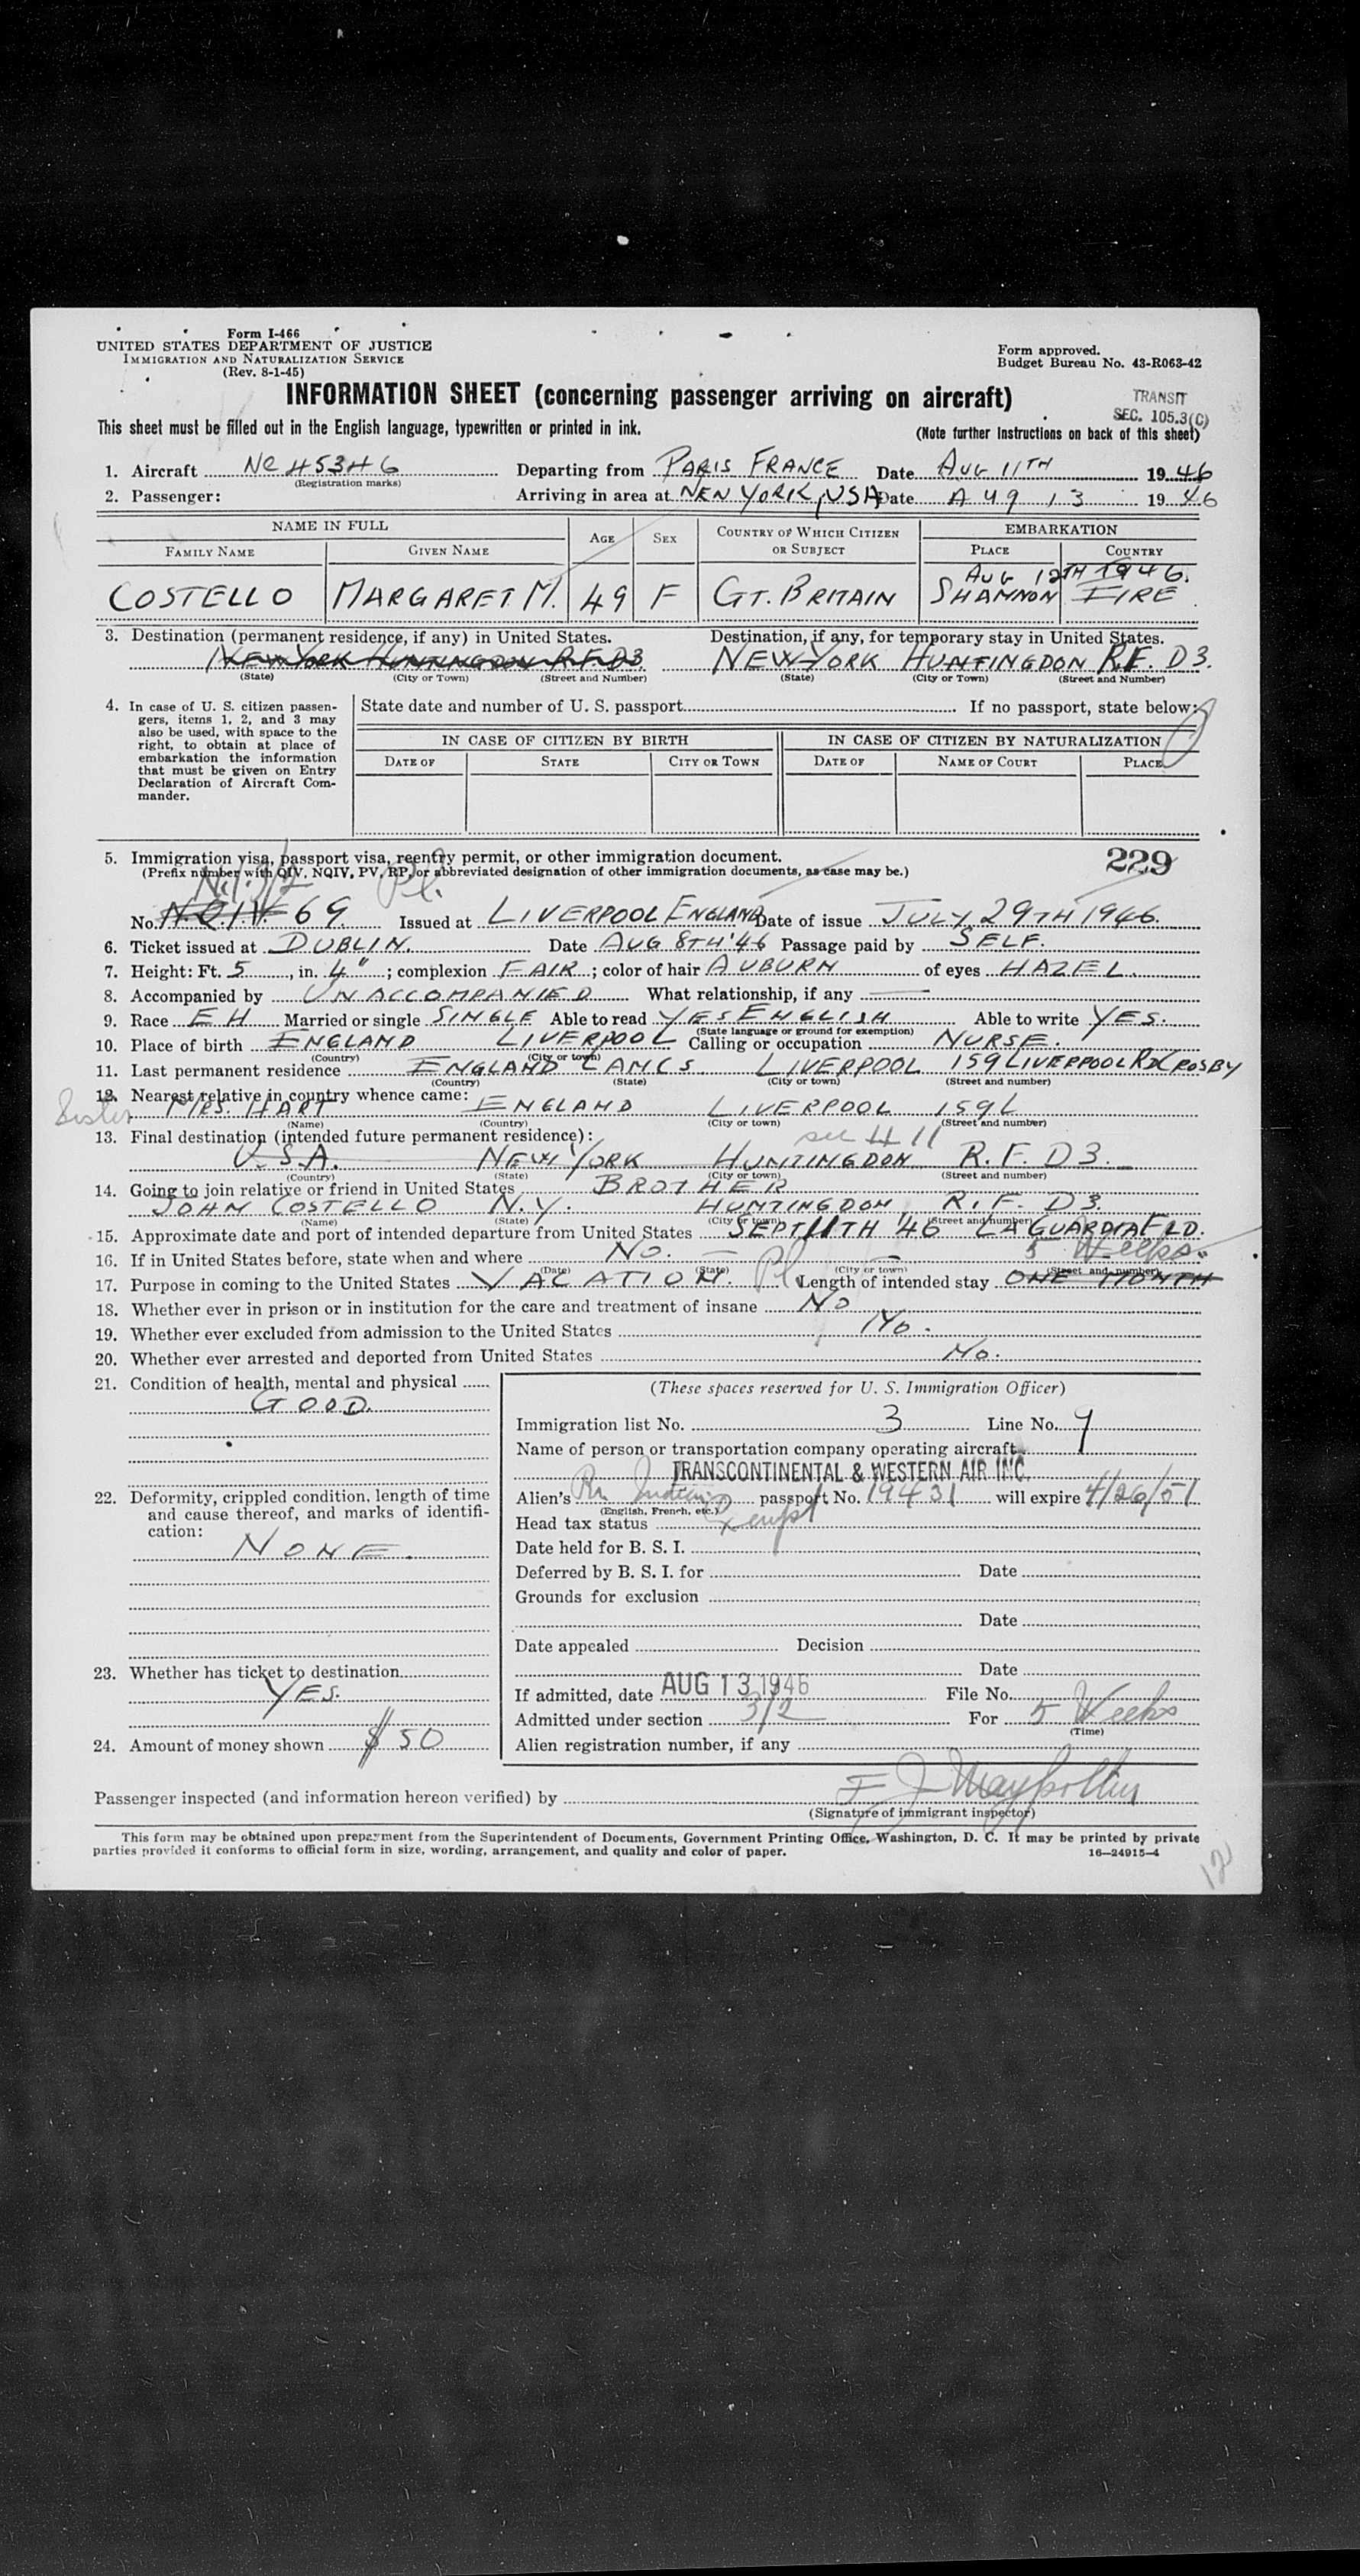 Form I-466
UNITED STATES DEPARTMENT OF JUSTICE
IMMIGRATION AND NATURALIZATION SERVICE
(Rev. 8-1-45)
Form approved.
Budget Bureau No. 43-R063-42
INFORMATION SHEET (concerning passenger arriving on aircraft)
TRANSIT
SEC. 105.3(C)
This sheet must be filled out in the English language, typewritten or printed in ink.
(Note further instructions on back of this sheet)
1. Aircraft NC 45346 Departing from PARIS FRANCE Date AUG 11TH 1946
(Registration marks)
2. Passenger: Arriving in area at NEW YORK, USA Date AUG 13 1946
NAME IN FULL AGE SEX COUNTRY OF WHICH CITIZEN OR SUBJECT EMBARKATION
FAMILY NAME GIVEN NAME PLACE COUNTRY
AUG 12TH 1946.
COSTELLO MARGARET M. 49 F GT. BRITAIN SHANNON EIRE
3. Destination (permanent residence, if any) in United States. Destination, if any, for temporary stay in United States.
NEW YORK HUNTINGDON R.F.D3. NEW YORK HUNTINGDON R.F. D3.
(State) (City or Town) (Street and Number) (State) (City or Town) (Street and Number)
4. In case of U. S. citizen passengers, items 1, 2, and 3 may also be used, with space to the right, to obtain at place of embarkation the information that must be given on Entry Declaration of Aircraft Commander.
State date and number of U. S. passport If no passport, state below:
IN CASE OF CITIZEN BY BIRTH IN CASE OF CITIZEN BY NATURALIZATION
DATE OF STATE CITY OR TOWN DATE OF NAME OF COURT PLACE
5. Immigration visa, passport visa, reentry permit, or other immigration document.
229
(Prefix number with QIV, NQIV, PV, RP, or abbreviated designation of other immigration documents, as case may be.)
3/2 Pl.
No. NQIV. 69. Issued at LIVERPOOL ENGLAND Date of issue JULY 29TH 1946.
6. Ticket issued at DUBLIN. Date AUG 8TH '46 Passage paid by SELF.
7. Height: Ft. 5, in. 4"; complexion FAIR; color of hair AUBURN of eyes HAZEL.
8. Accompanied by UNACCOMPANIED What relationship, if any —
9. Race EH Married or single SINGLE Able to read YES ENGLISH Able to write YES.
(State language or ground for exemption)
10. Place of birth ENGLAND LIVERPOOL Calling or occupation NURSE.
(Country) (City or town)
11. Last permanent residence ENGLAND LANCS. LIVERPOOL 159 LIVERPOOL RD CROSBY
(Country) (State) (City or town) (Street and number)
12. Nearest relative in country whence came:
Sister MRS. HART ENGLAND LIVERPOOL 159 L
(Name) (Country) (City or town) (Street and number)
13. Final destination (intended future permanent residence): see # 11
U.S.A. NEW YORK HUNTINGDON R.F. D3.
(Country) (State) (City or town) (Street and number)
14. Going to join relative or friend in United States BROTHER
JOHN COSTELLO N.Y. HUNTINGDON R.F. D3.
(Name) (State) (City or town) (Street and number)
15. Approximate date and port of intended departure from United States SEPT 11TH '46 LA GUARDIA FLD.
16. If in United States before, state when and where NO. —
(Date) (State) (City or town) (Street and number)
5 Weeks
17. Purpose in coming to the United States VACATION. Pl Length of intended stay ONE MONTH
18. Whether ever in prison or in institution for the care and treatment of insane NO
19. Whether ever excluded from admission to the United States NO.
20. Whether ever arrested and deported from United States NO.
21. Condition of health, mental and physical
GOOD.
22. Deformity, crippled condition, length of time and cause thereof, and marks of identification:
NONE.
23. Whether has ticket to destination
YES.
24. Amount of money shown $50
(These spaces reserved for U. S. Immigration Officer)
Immigration list No. 3 Line No. 9
Name of person or transportation company operating aircraft
TRANSCONTINENTAL & WESTERN AIR INC.
Alien's passport No. 19431 will expire 4/26/51
(English, French, etc.)
Head tax status Exempt
Date held for B. S. I.
Deferred by B. S. I. for Date
Grounds for exclusion
Date
Date appealed Decision
Date
If admitted, date AUG 13 1946 File No.
Admitted under section 3/2 For 5 Weeks
(Time)
Alien registration number, if any
Passenger inspected (and information hereon verified) by
(Signature of immigrant inspector)
This form may be obtained upon prepayment from the Superintendent of Documents, Government Printing Office, Washington, D. C. It may be printed by private
parties provided it conforms to official form in size, wording, arrangement, and quality and color of paper. 16—24915-4
12